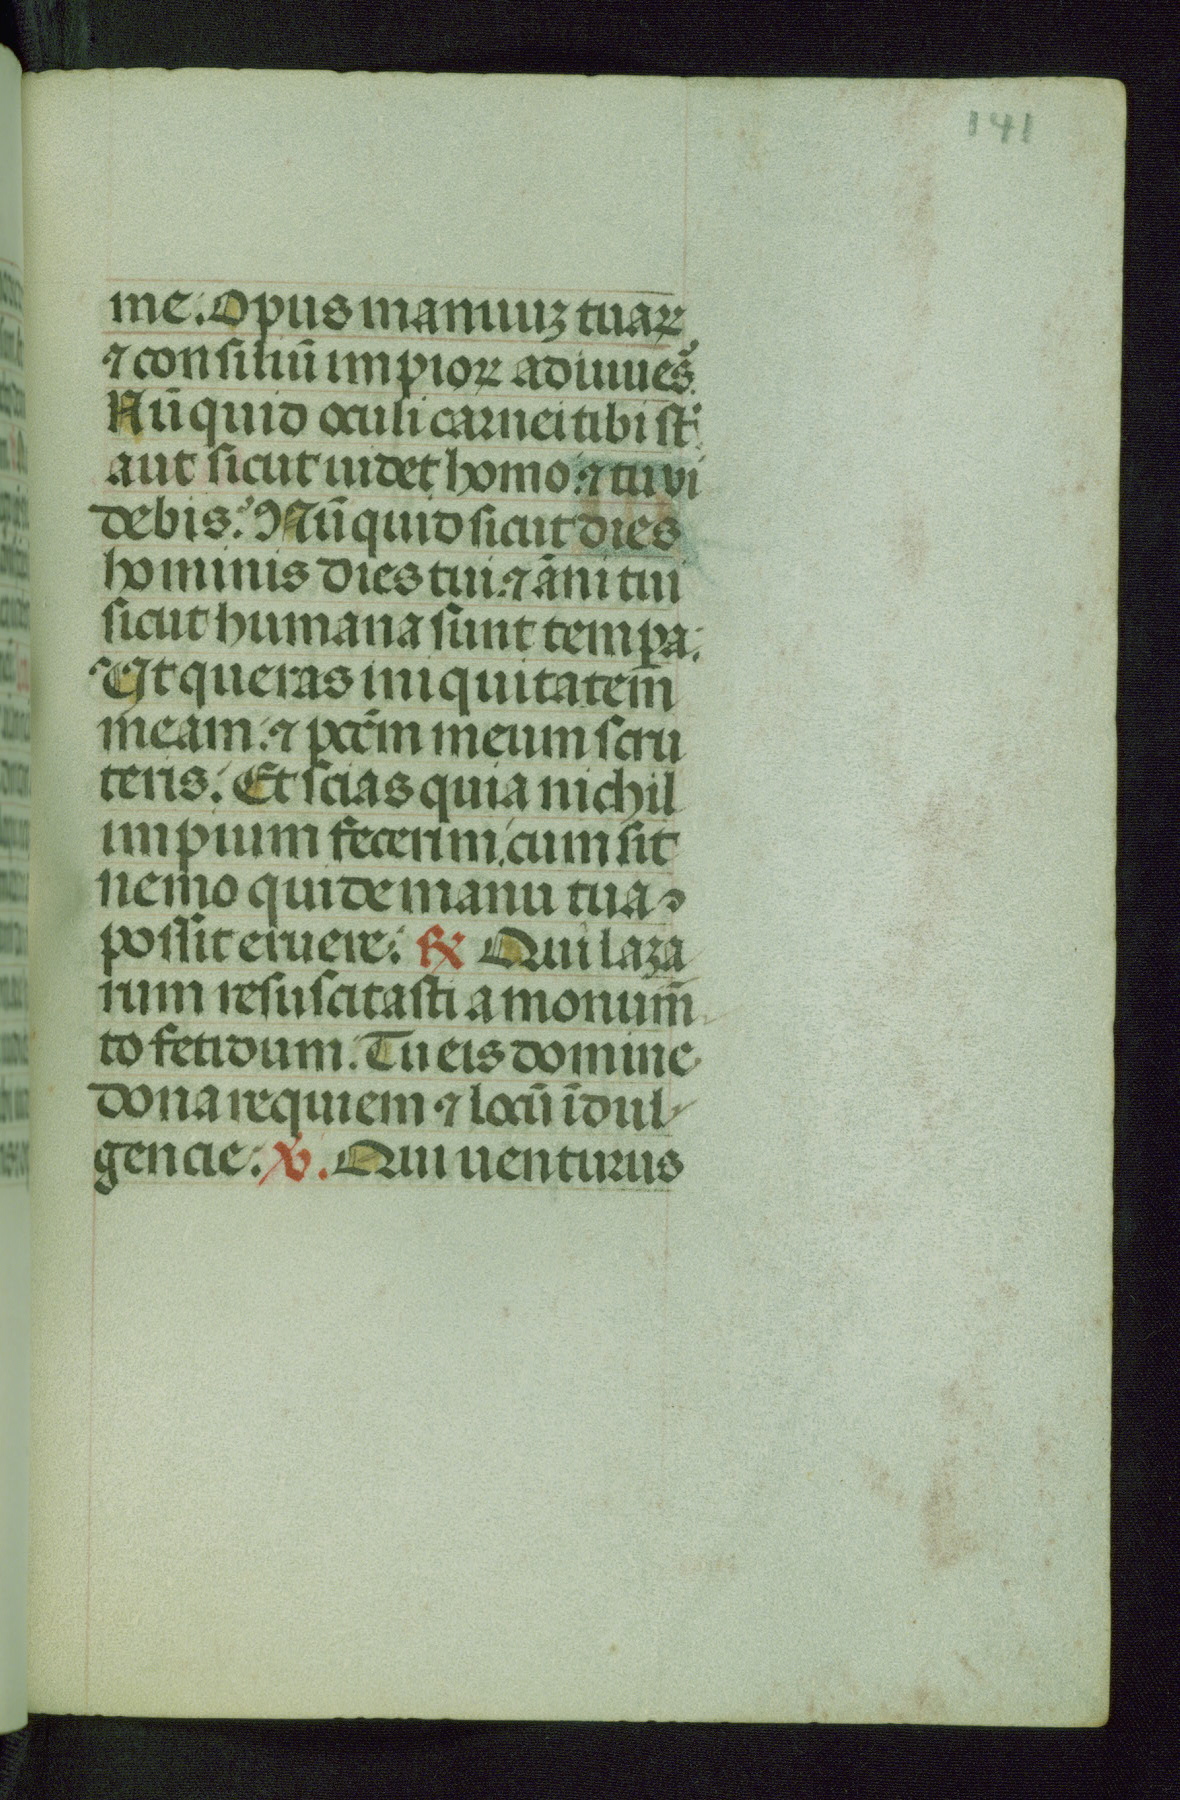 141
me. Opus manuuꝫ tuaꝝ
⁊ consiliū impioꝝ adiuues?
Nūquid oculi carnei tibi st̄:
aut sicut uidet homo: ⁊ tu vi
debis? Nūquid sicut dies
hominis dies tui: ⁊ āni tui
sicut humana sunt tempa:
Ut queras iniquitatem̄
meam: ⁊ pctm̄ meum scru
teris: Et scias quia nichil
impium fecerim, cum sit
nemo qui de manu tua
possit eruere: ℟ Qui laza
rum resuscitasti a monum̄
to fetidum. Tu eis domine
dona requiem ⁊ locū īdul
gencie: ℣. Qui uenturus